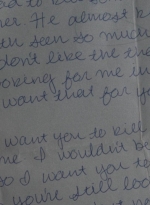 her. He almost
seen so much
don't like the
looking for me
want that for
want you to kill
me I wouldn't be
so I want you to
you're still
want